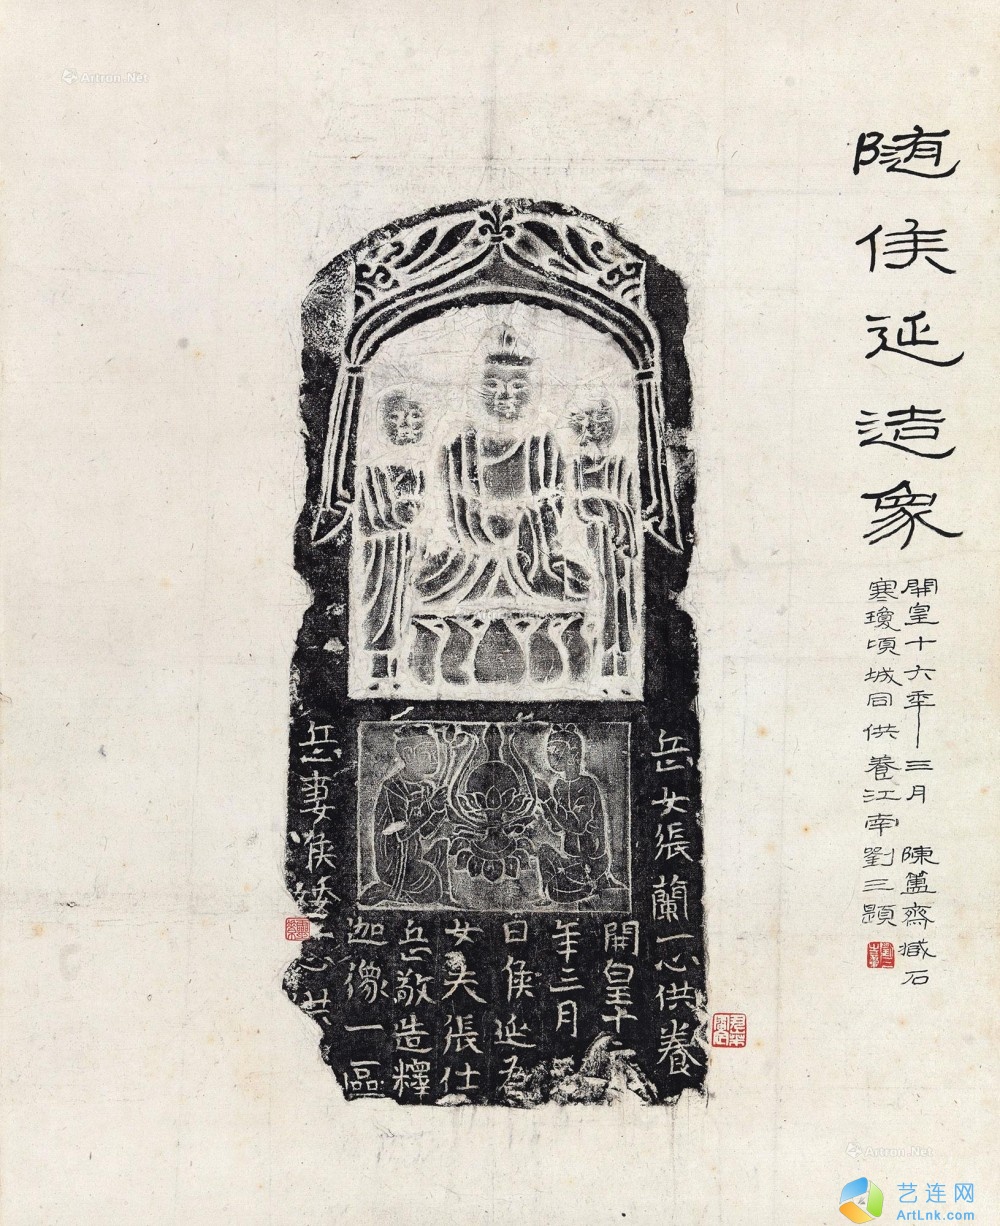 随侯延造象
開皇十六年三月 陳簠齋臧石
寒瓊頃城同供養江南劉三題
岳女張蘭一心供養
開皇十
年三月
日侯延為
女夫張仕
岳敬造釋
迦像一區
岳妻侯矮一心供
Artron.Net
Artron.Net
艺连网
ArtLnk.com